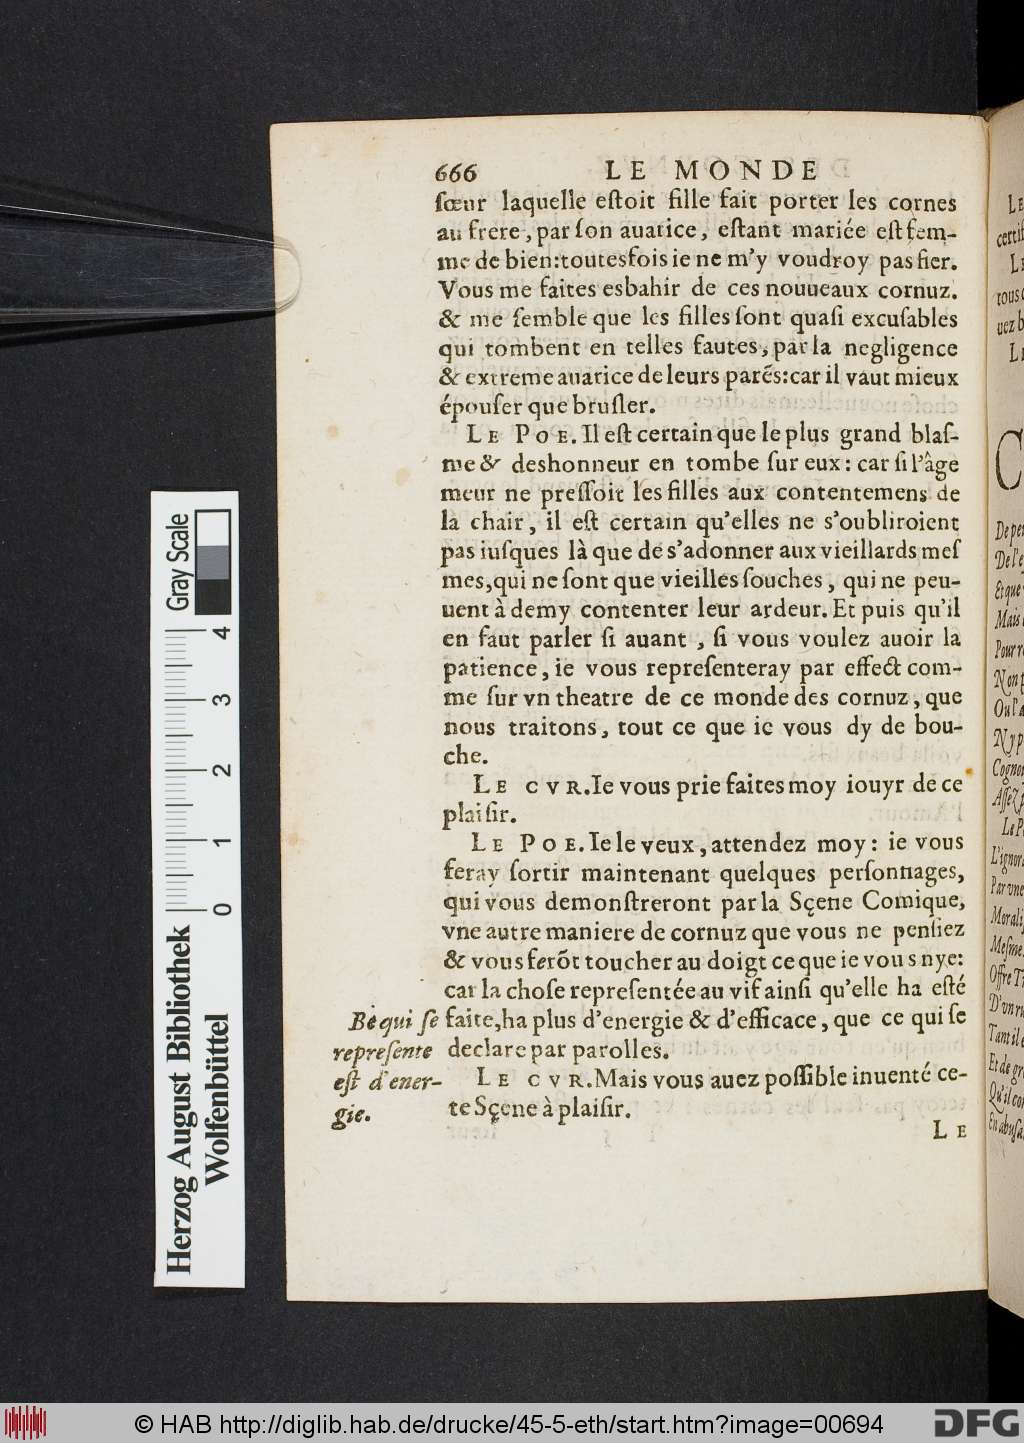 666 LE MONDE
ſœur laquelle eſtoit fille fait porter les cornes
au frere, par ſon auarice, eſtant mariée eſt fem-
me de bien: toutesfois ie ne m'y voudroy pas fier.
Vous me faites esbahir de ces nouueaux cornuz.
& me ſemble que les filles ſont quaſi excuſables
qui tombent en telles fautes, par la negligence
& extreme auarice de leurs parẽs: car il vaut mieux
épouſer que bruſler.
LE POE. Il eſt certain que le plus grand blaſ-
me & deshonneur en tombe ſur eux: car ſi l'âge
meur ne preſſoit les filles aux contentemens de
la chair, il eſt certain qu'elles ne s'oubliroient
pas iuſques là que de s'adonner aux vieillards meſ
mes, qui ne ſont que vieilles ſouches, qui ne peu-
uent à demy contenter leur ardeur. Et puis qu'il
en faut parler ſi auant, ſi vous voulez auoir la
patience, ie vous repreſenteray par effect com-
me ſur vn theatre de ce monde des cornuz, que
nous traitons, tout ce que ie vous dy de bou-
che.
LE CVR. Ie vous prie faites moy iouyr de ce
plaiſir.
LE POE. Ie le veux, attendez moy: ie vous
feray ſortir maintenant quelques perſonnages,
qui vous demonſtreront par la Sçene Comique,
vne autre maniere de cornuz que vous ne penſiez
& vous ferõt toucher au doigt ce que ie vous nye:
car la choſe repreſentée au vif ainſi qu'elle ha eſté
faite, ha plus d'energie & d'efficace, que ce qui ſe
declare par parolles.
LE CVR. Mais vous auez poſſible inuenté ce-
te Sçene à plaiſir.
LE
Bẽ qui ſe
repreſente
eſt d'ener-
gie.
Gray Scale
0 1 2 3 4
Herzog August Bibliothek
Wolfenbüttel
LE
LE
C
De
De l'e
Et que
Mais
Non
© HAB http://diglib.hab.de/drucke/45-5-eth/start.htm?image=00694
DFG